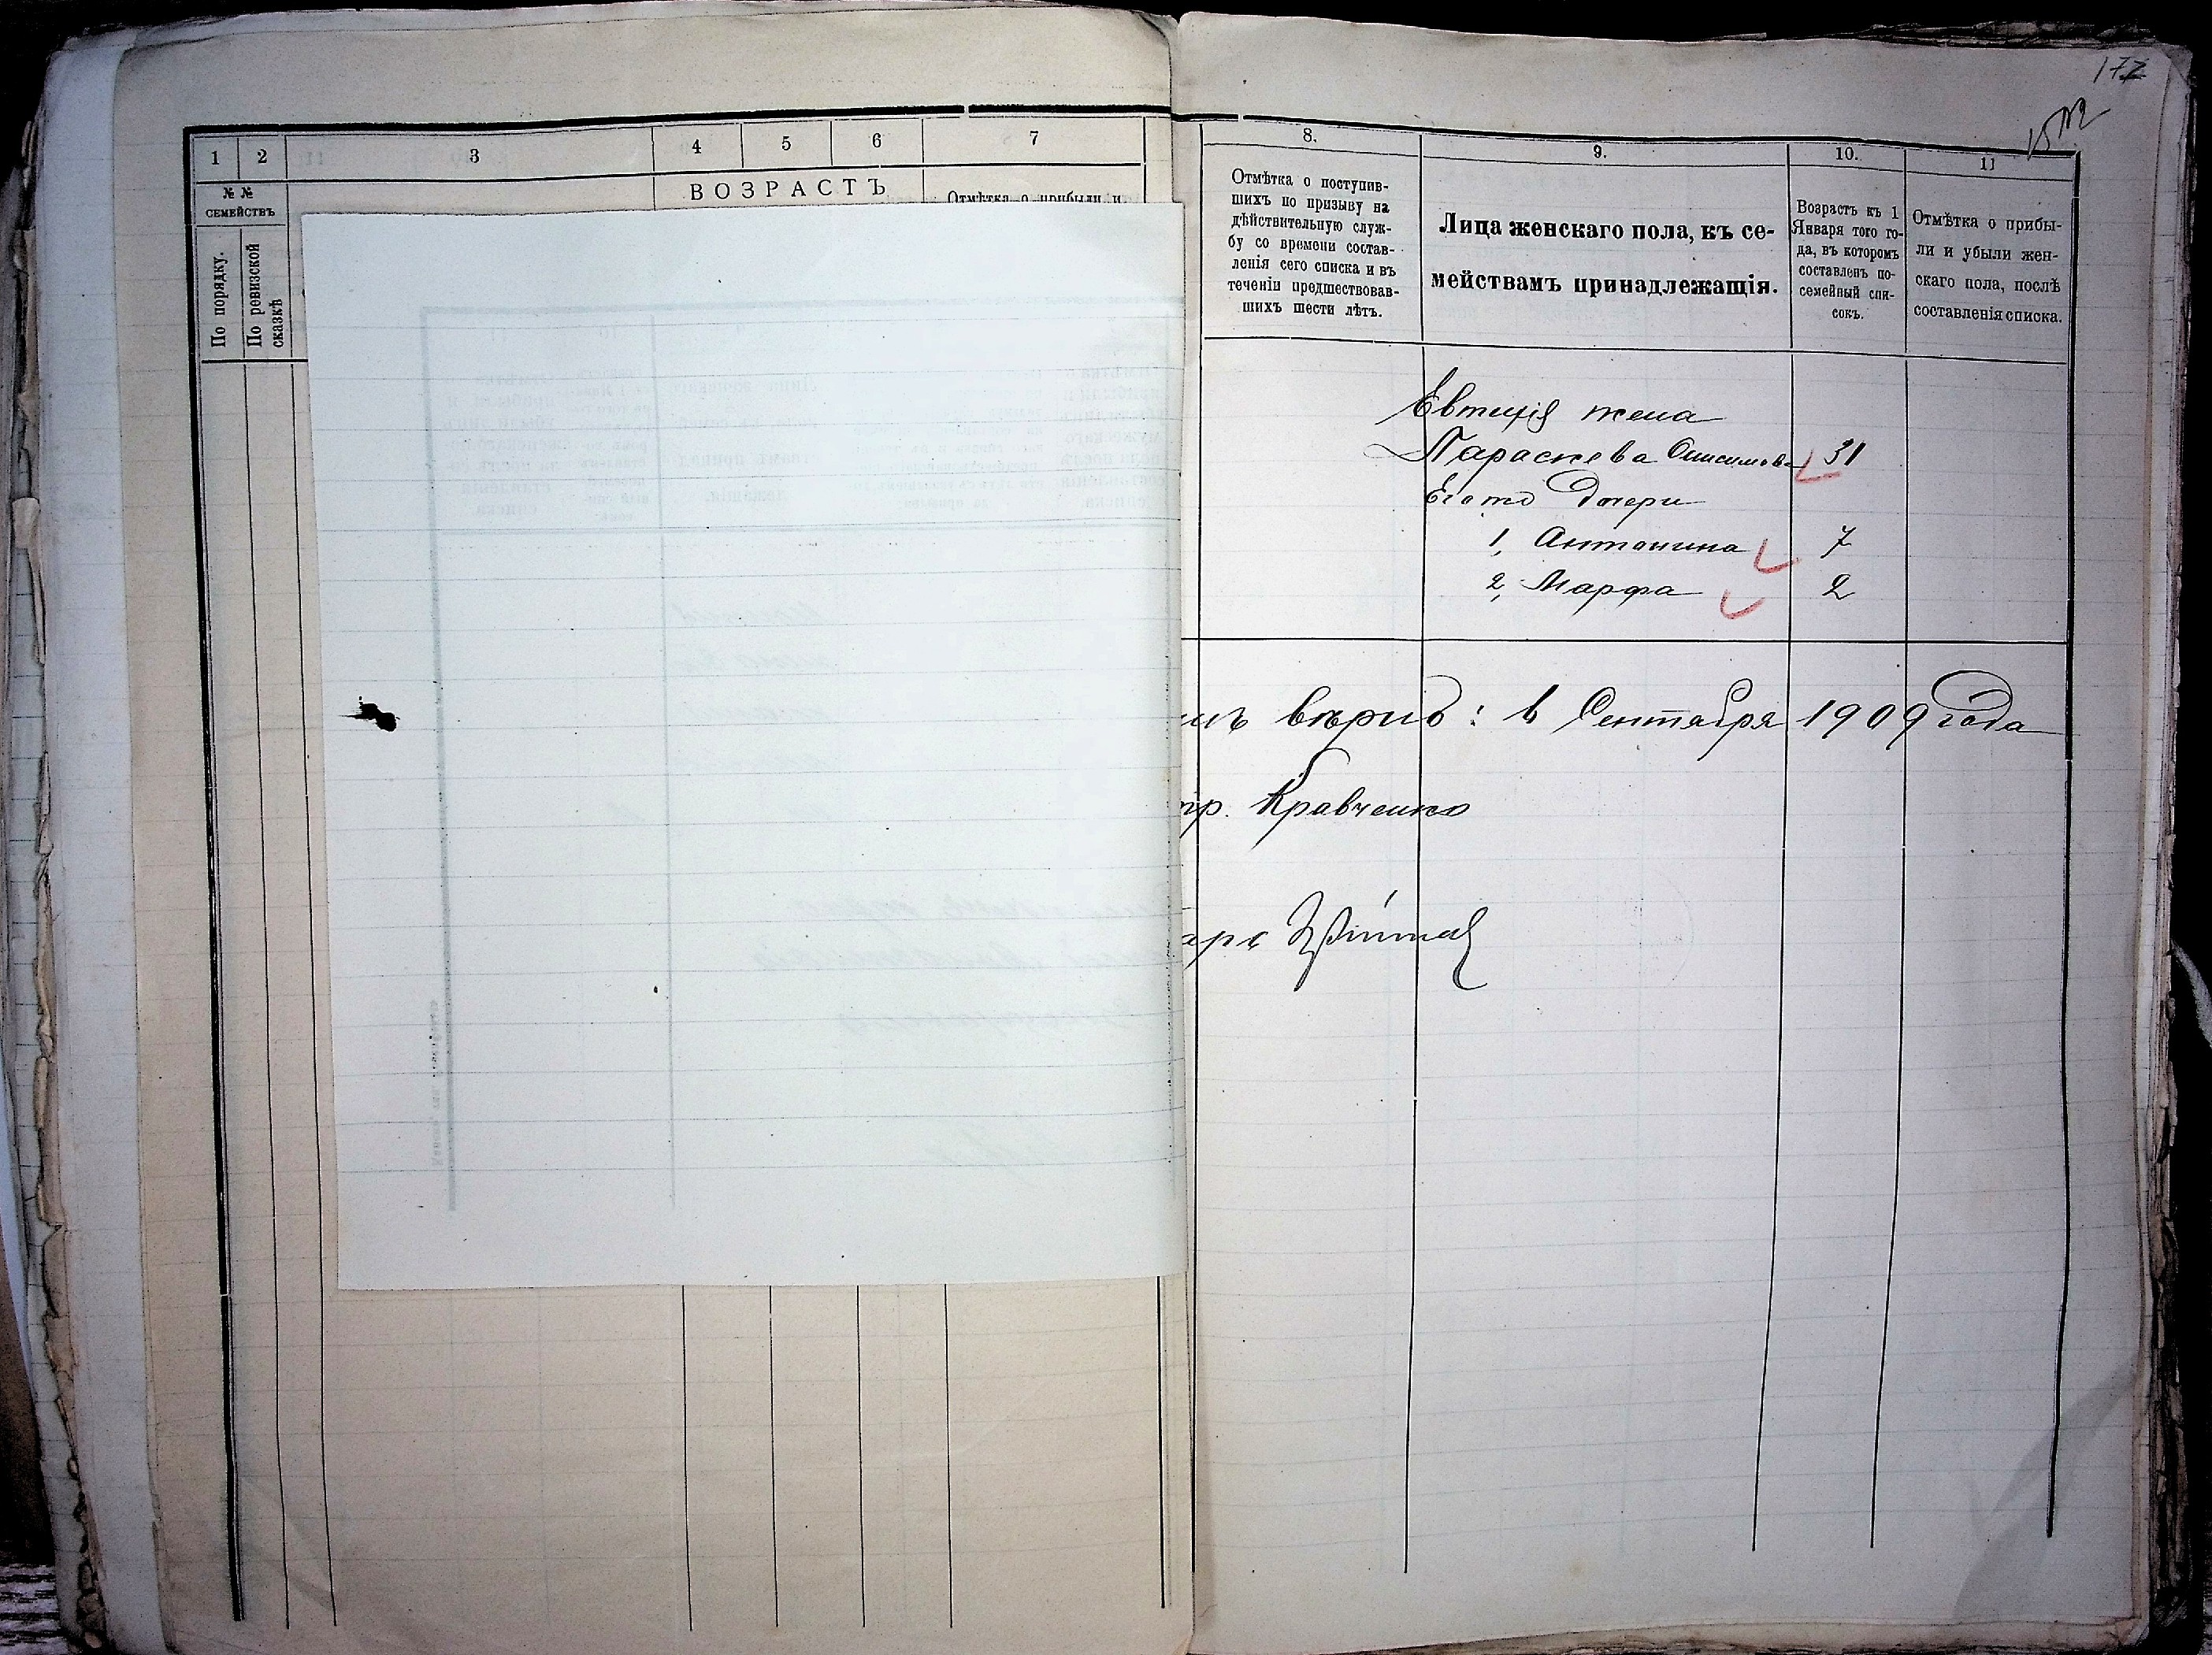 177
1
2
3
4
5
6
7
№ №
СЕМЕЙСТВЪ
По порядку.
По ревизской
сказкѣ
ВОЗРАСТЪ
Отмѣтка о прибыли и
8.
9.
10.
11
Отмѣтка о поступив-
шихъ по призыву на
дѣйствительную служ-
бу со времени состав-
ленія сего списка и въ
теченіи предшествовав-
шихъ шести лѣтъ.
Лица женскаго пола, къ се-
мействамъ принадлежащія.
Возрастъ къ 1
Января того го-
да, въ которомъ
составленъ по-
семейный спи-
сокъ.
Отмѣтка о прибы-
ли и убыли жен-
скаго пола, послѣ
составленія списка.
Евтихія жена
Параскева Онисимова 31
Его то дочери
1, Антонина 7
2, Марфа 2
вѣрно: 6 Сентября 1909 года
Кравченко